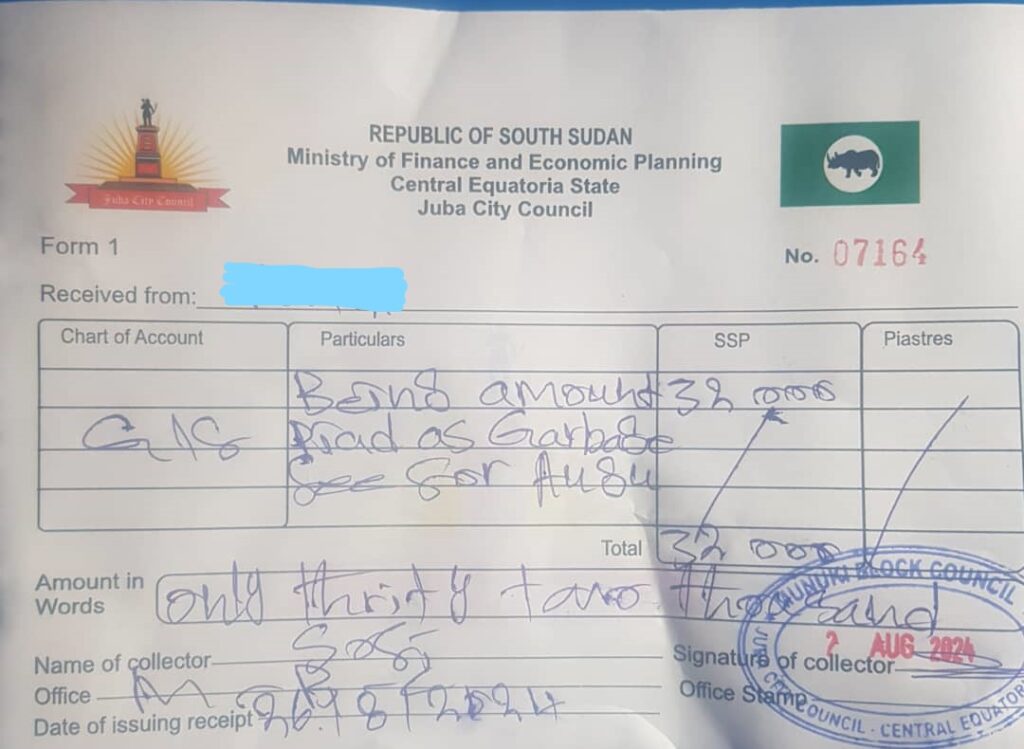 REPUBLIC OF SOUTH SUDAN
Ministry of Finance and Economic Planning
Central Equatoria State
Juba City Council
Juba City Council
Form 1
No. 07164
Received from:
Chart of Account Particulars SSP Piastres
Being amount 32 000
G/S Piad as Garbage
fee for Augu
Total 32 000
Amount in Words only thrity two thousand
Name of collector
Signature of collector
Office M
Office Stamp
Date of issuing receipt 26/8/2024
MUNUKI BLOCK COUNCIL
AUG 2024
COUNCIL - CENTRAL EQUATOR